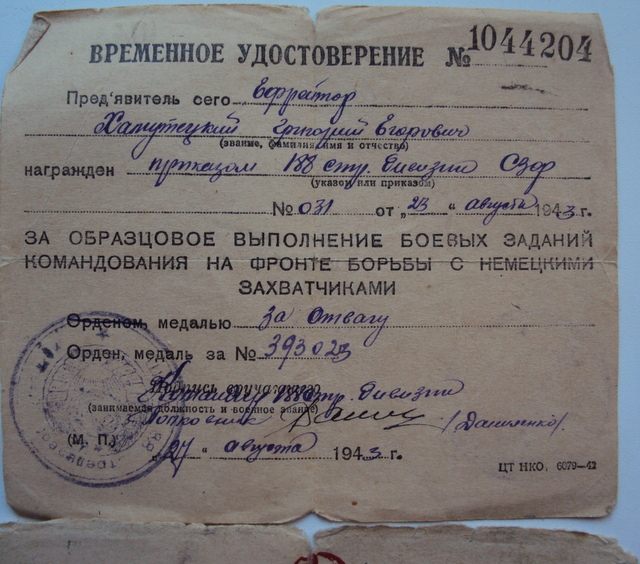 ВРЕМЕННОЕ УДОСТОВЕРЕНИЕ № 1044204
Пред'явитель сего Ефрейтор
Хамутецкий Григорий Егорович
(звание, фамилия, имя и отчество)
награжден приказом 188 стр. дивизии СЗФ
(указом или приказом)
№ 031 от „ 23 " августа 1943 г.
ЗА ОБРАЗЦОВОЕ ВЫПОЛНЕНИЕ БОЕВЫХ ЗАДАНИЙ
КОМАНДОВАНИЯ НА ФРОНТЕ БОРЬБЫ С НЕМЕЦКИМИ
ЗАХВАТЧИКАМИ
Орденом, медалью За Отвагу
Орден, медаль за № 393023
Подпись вручающего
188 стр. дивизии
(занимаемая должность и военное звание)
Полковник /Даниленко/
(М. П.)
„27 " августа 1943 г.
ЦТ НКО, 6079—42